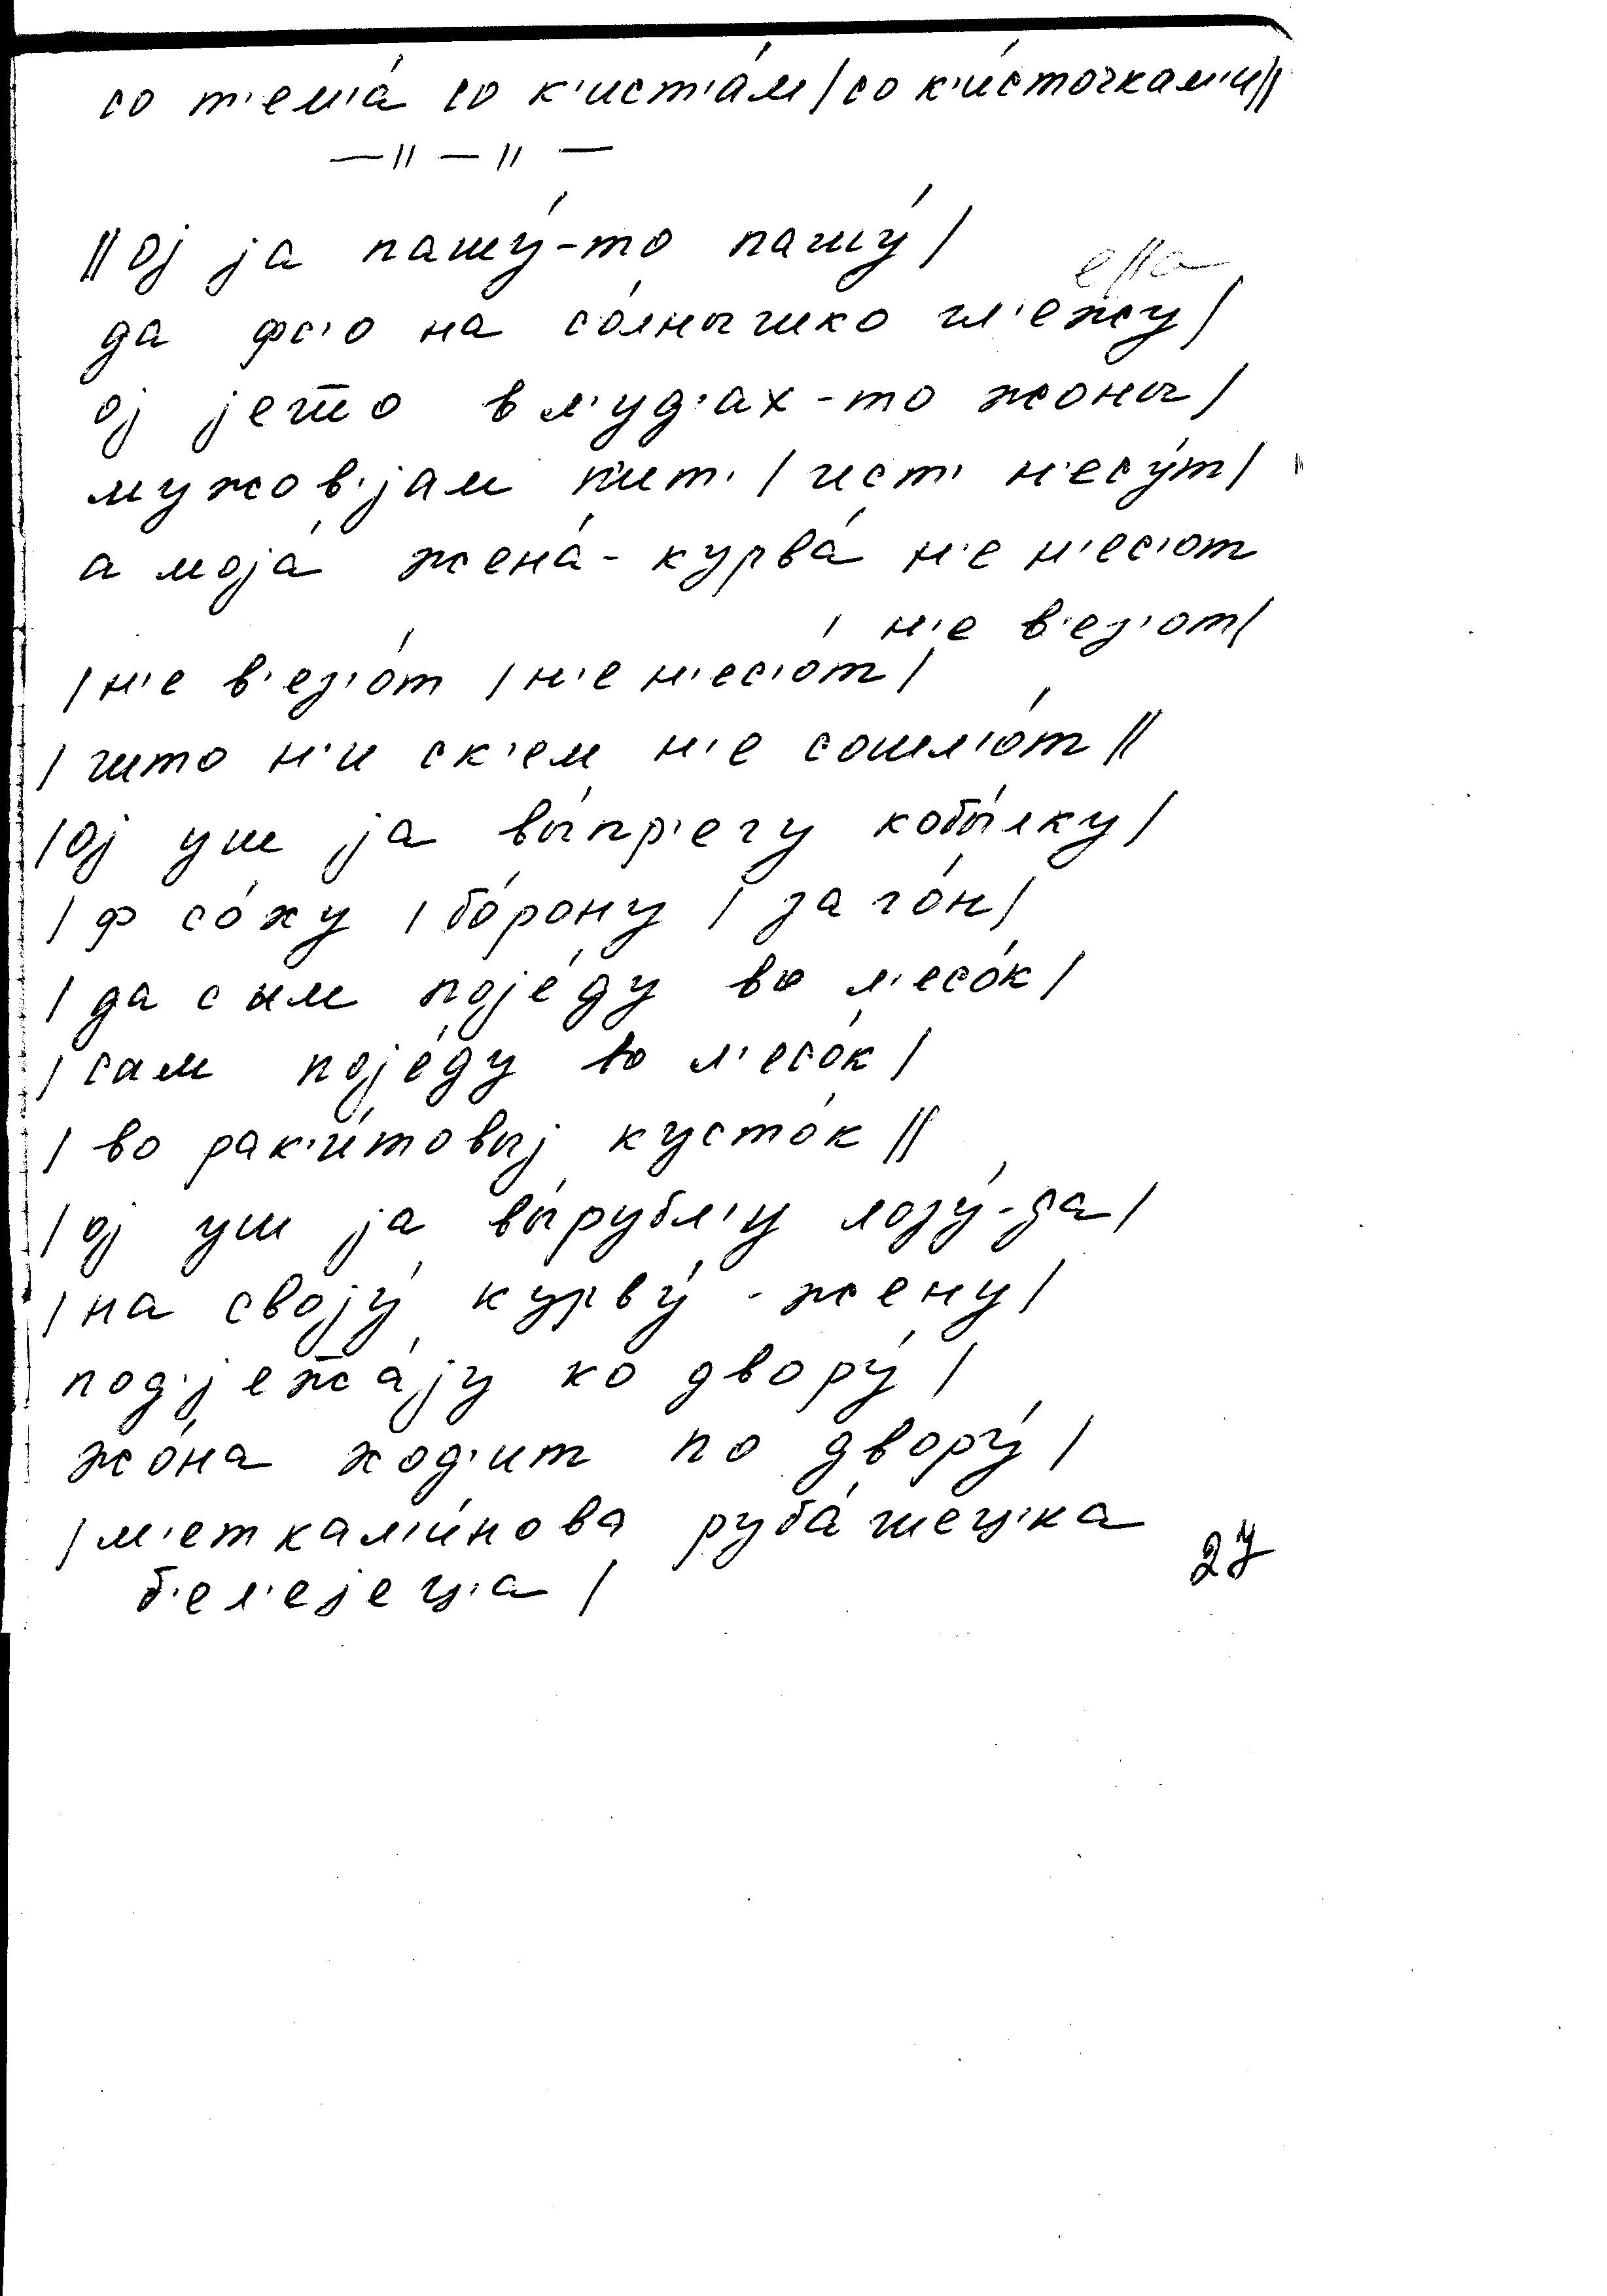 со т'ем'а́ со к'ист'а́м / со к'и́сточкам'и //
— // — // —
// ој ја пашу́-то пашу́ /
е//а
да фс'о на со́лнышко гл'ежу /
ој јешо в л'уд'ах-то жоны /
мужов'јам пит' / ист' н'есу́т /
а моја́ жена́-курва́ н'е н'ес'от
/ н'е в'ез'от /
/ н'е в'ез'о́т / н'е н'ес'от /
/ што н'и ск'ем н'е сошл'о́т //
/ ој уш ја вы́пр'егу кобы́лку /
/ ф со́ху / бо́рону / загон /
/ да сам поје́ду во л'есо́к /
/ сам поје́ду во л'есо́к /
/ во рак'и́товыј кусто́к //
/ ој уш ја вы́рубл'у лозу́-да /
/ на своју́ курву́-жену /
под'јежа́ју ко двору́ /
жо́на ход'ит по двору́ /
/ м'еткал'и́нова руба́шец'ка
б'ел'ејец'а /
27